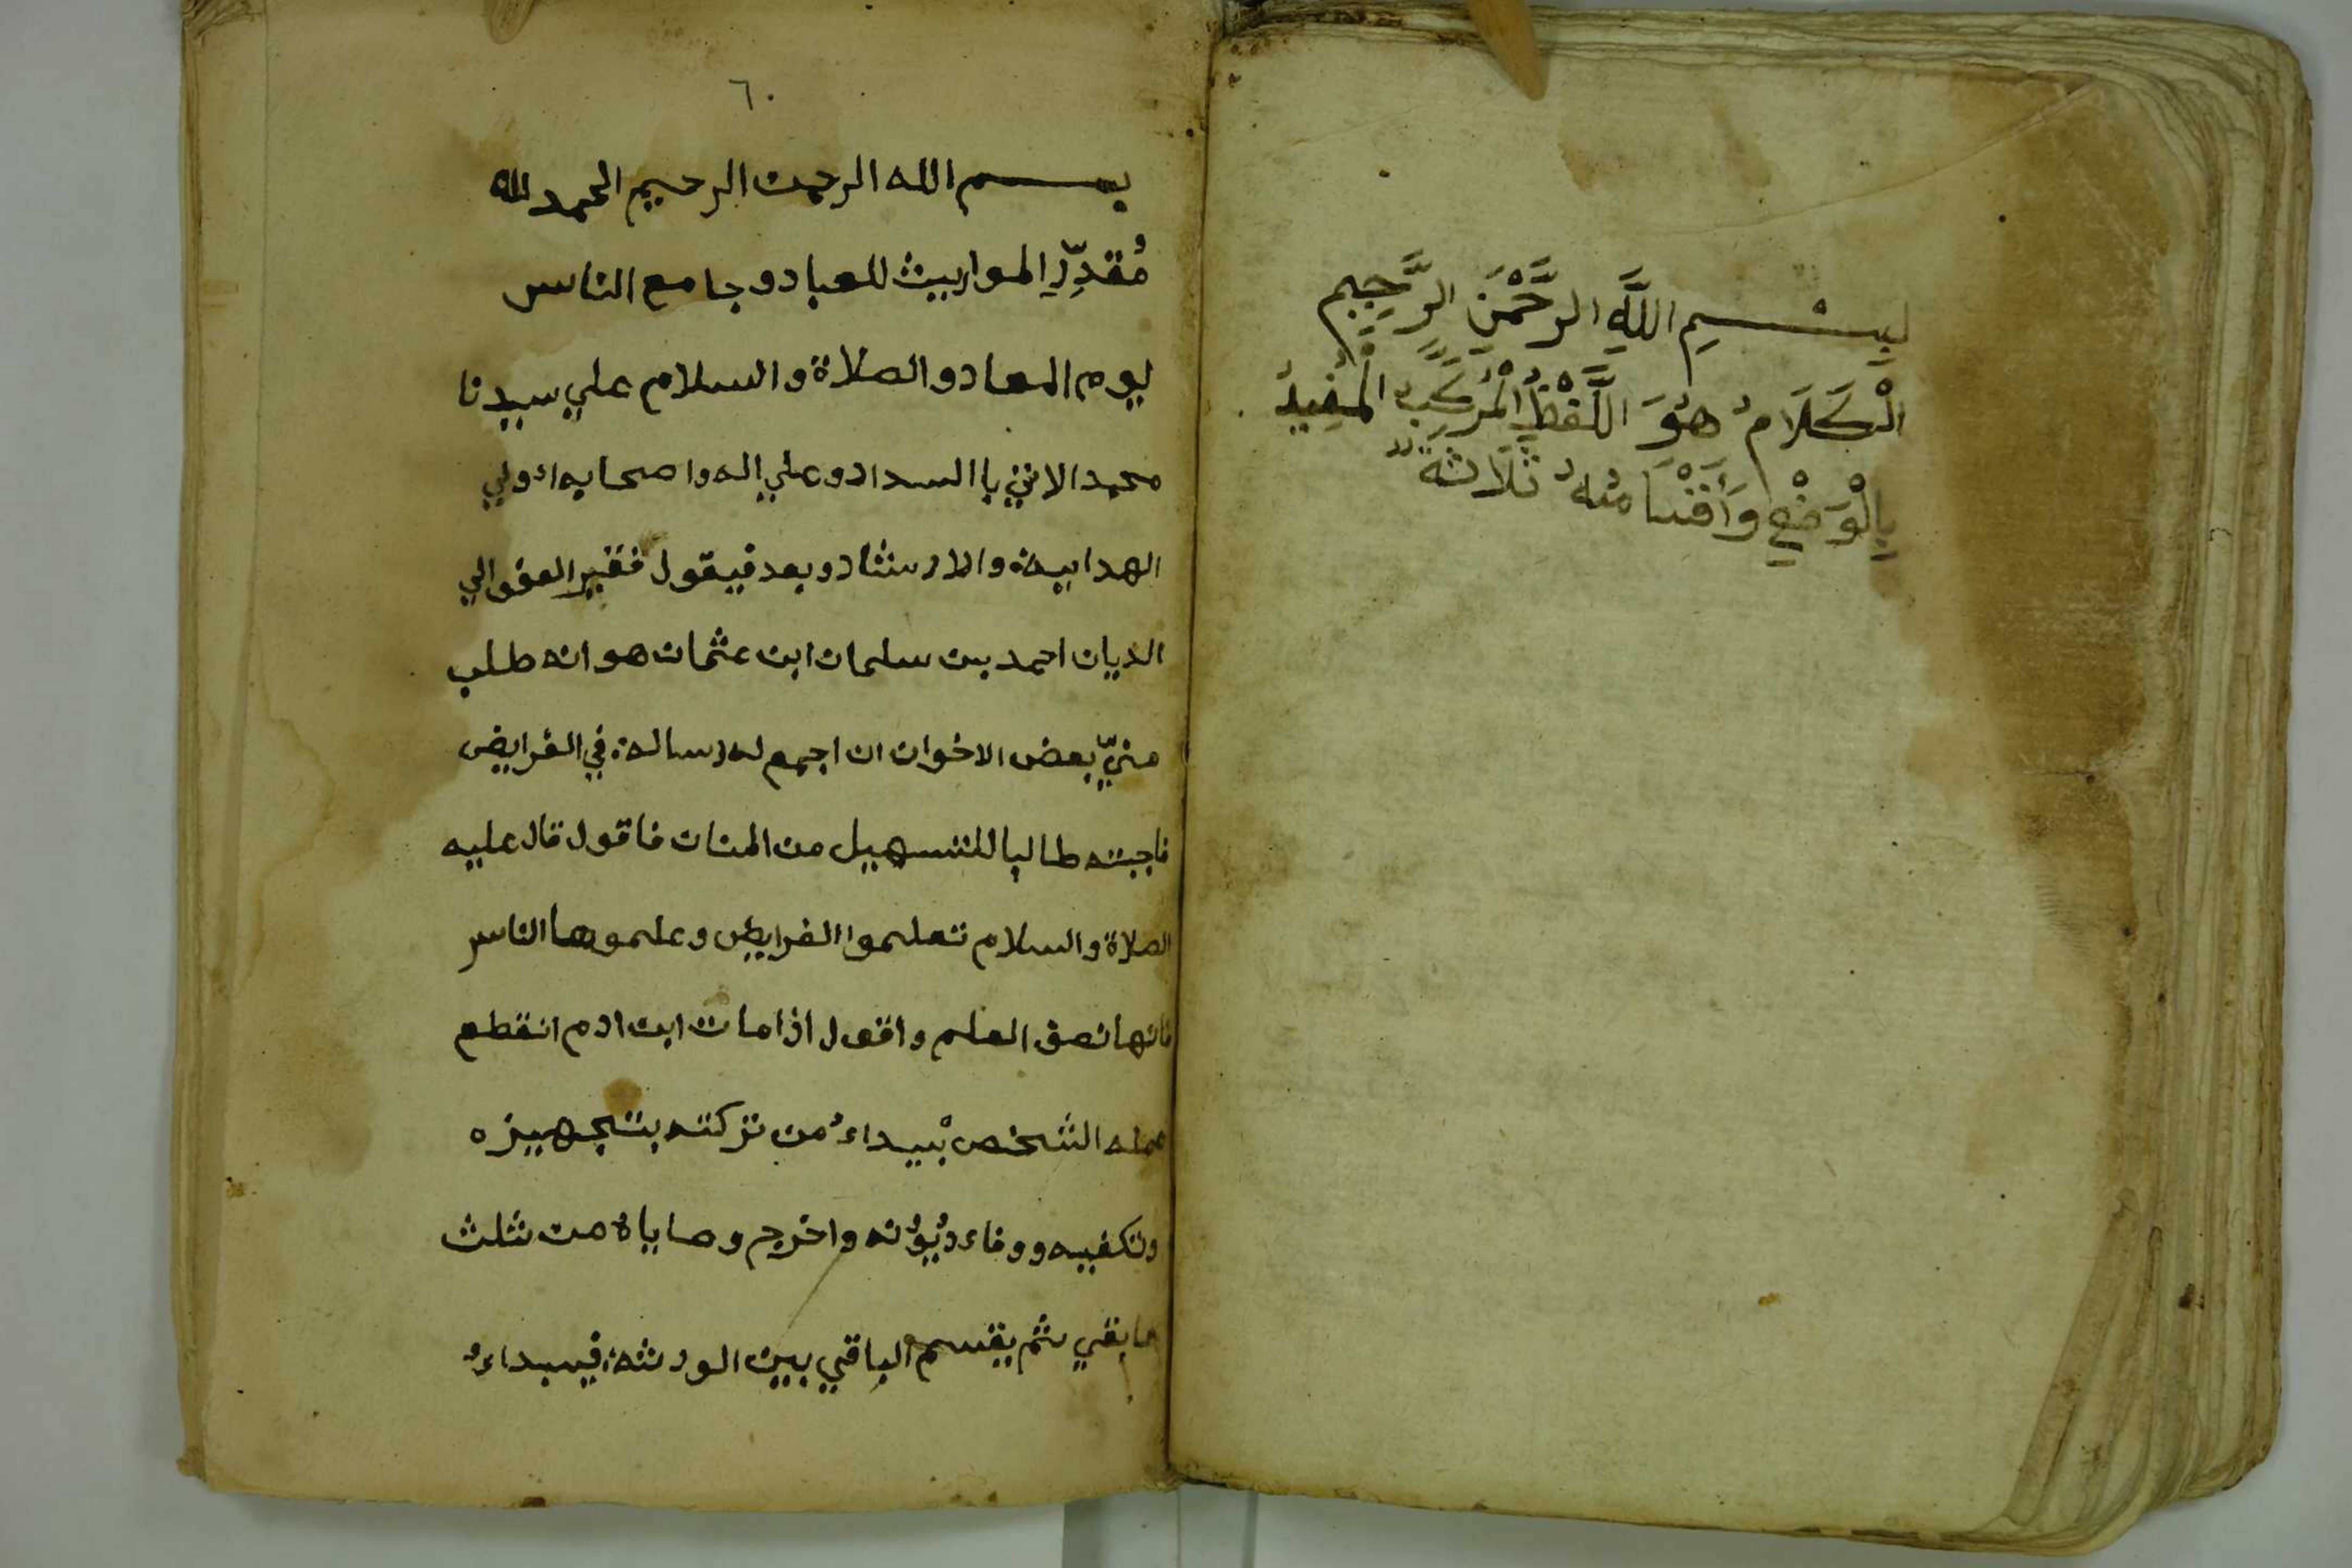 بِســـمِ اللَّهِ الرَّحْمَنِ الرَّحِيمِ
الْكَلَامُ هُوَ اللَّفْظُ الْمُرَكَّبُ الْمُفِيدُ
بِالْوَضْعِ وَأَقْسَامُهُ ثَلَاثَةٌ
٦٠
بســـم الله الرحمن الرحيم الحمد لله
مُقدِّرِ المواريث للعباد وجامع الناس
ليوم المعاد والصلاة والسلام علي سيدنا
محمد الاتي باالسداد وعلي اله واصحابه اولي
الهداية والارشاد وبعد فيقول فقير العفو الي
الديان احمد بن سلمان ابن عثمان هو انه طلب
منيّ بعض الاخوان ان اجمع له رسالة في الفرايض
فاجبته طالبا للتسهيل من المنان فاقول قال عليه
الصلاة والسلام تعلموا الفرايض وعلموها الناس
فانها نصف العلم واقول اذا مات ابن ادم انقطع
عمله الشخص يْبداءُ من تركته بتجهيزه
وتكفيه ووفاء ديُوُنه واخرج وصاياه من ثلث
ما بقي ثم يقسم الباقي بين الورثة فيبداءُ